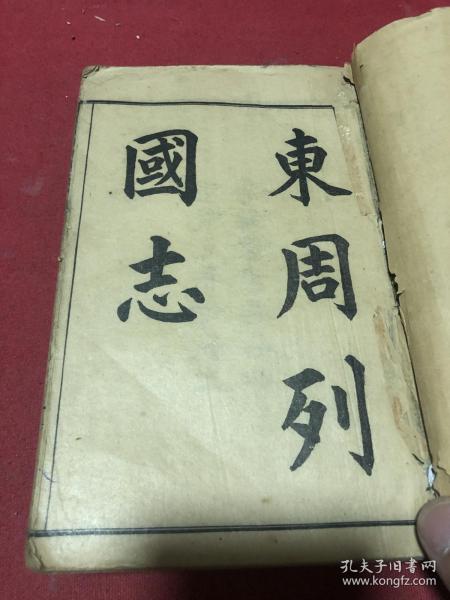 東周列
國志
孔夫子旧书网
www.kongfz.com